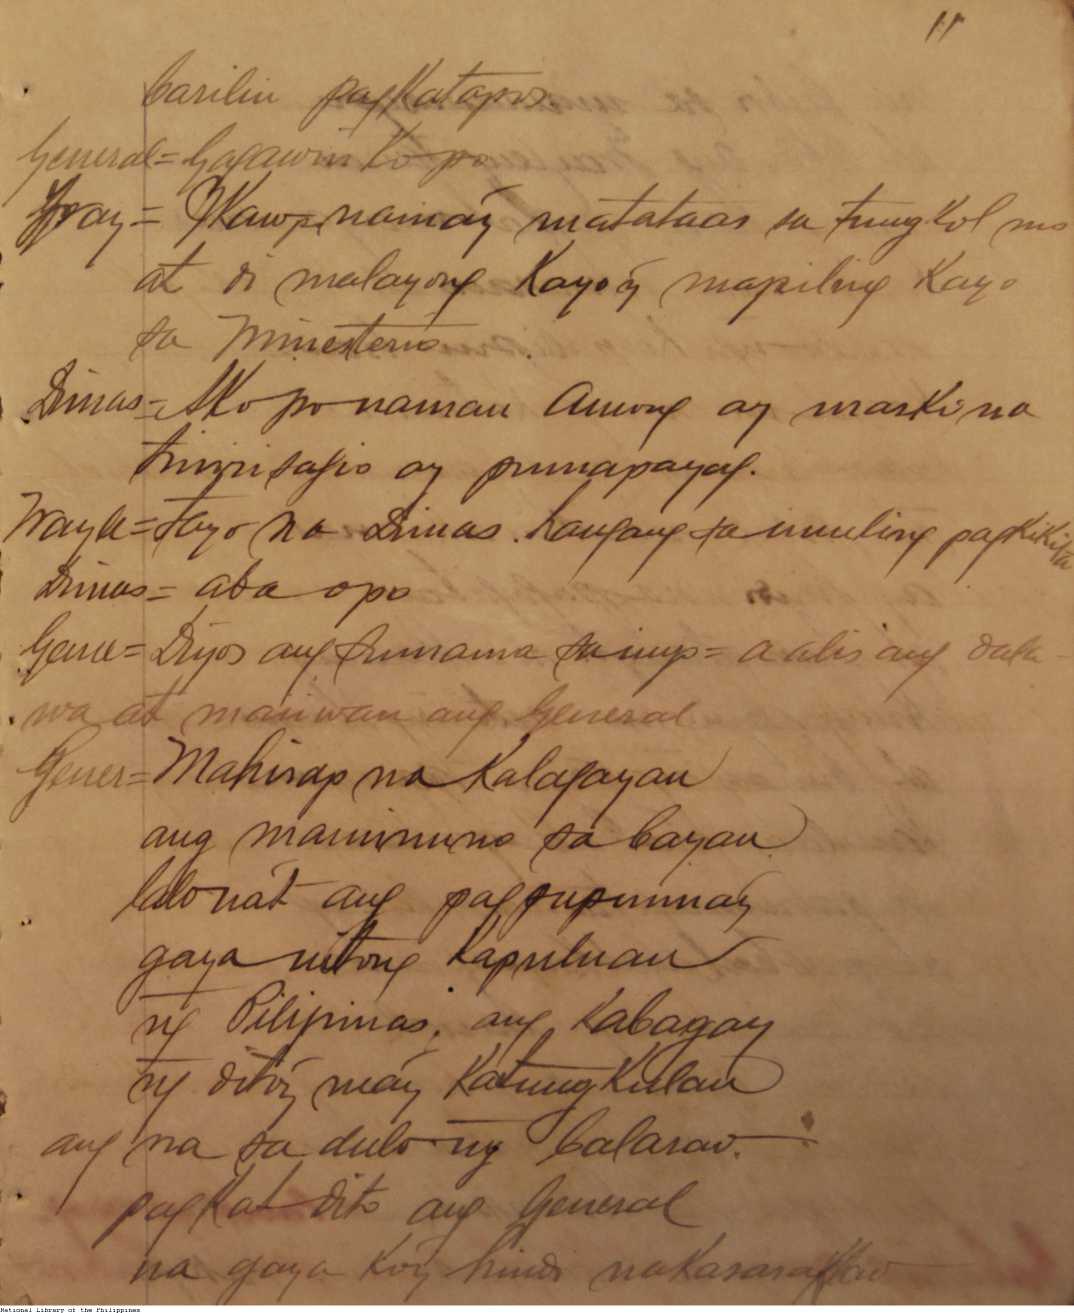 11
barilin pagkatapos
General = Gagawin ko po
Fray = Ikaw po namáy matataas sa tungkol mo
at di malayong Kayóy mapiling Kayo
sa Ministerio.
Dimas = Ako po naman Among ay maski na
trisijio ay pumapayag.
Frayle = Tayo na Dimas. hangang sa muling pagkikita
Dimas = aba opo
Gene = Diyos ang sumama sa inyo = a alis ang dala-
wa at maiwan ang General
Gener = Mahirap na Kalagayan
ang mamumuno sa bayan
lalo nát ang pagpupunuáy
gaya nitong Kapuluan
ng Pilipinas, ang Kabagay
ng ditóy may Katungkulan
ang na sa dulo ng balaraw.
pagkat dito ang General
na gaya Kóy hindi
National Library of the Philippines